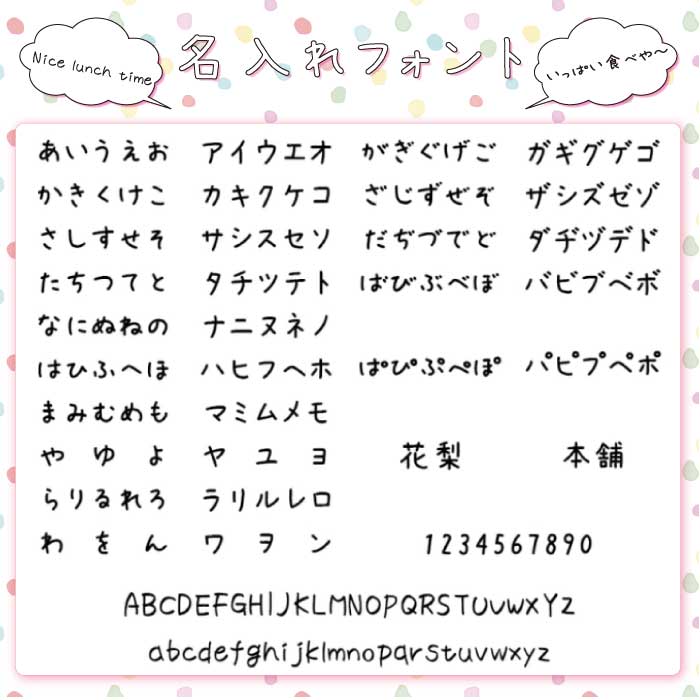 Nice lunch time
名入れフォント
いっぱい食べや〜
あいうえお アイウエオ がぎぐげご ガギグゲゴ
かきくけこ カキクケコ ざじずぜぞ ザシズゼゾ
さしすせそ サシスセソ だぢづでど ダヂヅデド
たちつてと タチツテト ばびぶべぼ バビブベボ
なにぬねの ナニヌネノ
はひふへほ ハヒフヘホ ぱぴぷぺぽ パピプペポ
まみむめも マミムメモ
や ゆ よ ヤ ユ ヨ 花梨 本舗
らりるれろ ラリルレロ
わ を ん ワ ヲ ン 1234567890
ABCDEFGHIJKLMNOPQRSTUVWXYZ
abcdefghijklmnopqrstuvwxyz